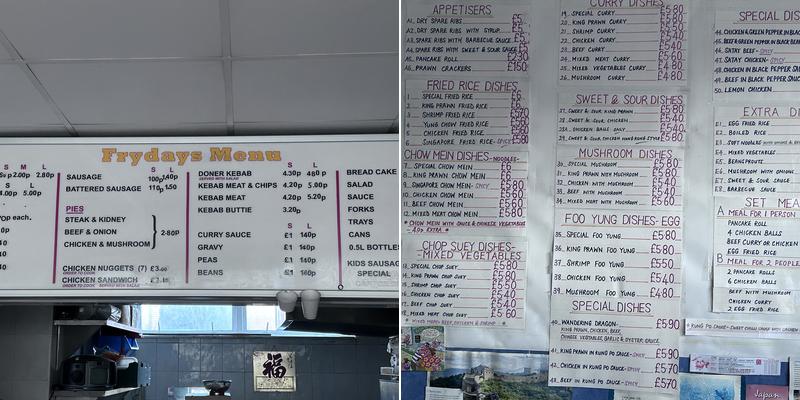 Frydays Menu
S M L
2.00p 2.80p
S L
4.00p 5.00p
POP each.
PIES
S L
SAUSAGE 100p 140p
BATTERED SAUSAGE 110p 150
STEAK & KIDNEY
BEEF & ONION 2.80p
CHICKEN & MUSHROOM
CHICKEN NUGGETS (7) £3.00
ORDER TO COOK
CHICKEN SANDWICH
ORDER TO COOK SERVED WITH SALAD
S L
DONER KEBAB 4.30p 480p
SERVED WITH SALAD
KEBAB MEAT & CHIPS 4.20p 5.00p
KEBAB MEAT 4.20p 5.20p
KEBAB BUTTIE 3.20p
S L
CURRY SAUCE £1 140p
GRAVY £1 140p
PEAS £1 140p
BEANS £1 160p
BREAD CAKE
SALAD
SAUCE
FORKS
TRAYS
CANS
0.5L BOTTLE
KIDS SAUSAGE
SPECIAL
福
APPETISERS
A1. DRY SPARE RIBS £5
A2. DRY SPARE RIBS WITH SYRUP £5
A3. SPARE RIBS WITH BARBECUE SAUCE
A4. SPARE RIBS WITH SWEET & SOUR SAUCE £5
A5. PANCAKE ROLL £2.30
A6. PRAWN CRACKERS £1.50
FRIED RICE DISHES
1 SPECIAL FRIED RICE £6
2 KING PRAWN FRIED RICE £6
3 SHRIMP FRIED RICE £5.70
4 YUNG CHOW FRIED RICE £5.80
5 CHICKEN FRIED RICE £5.60
6 SINGAPORE FRIED RICE-SPICY £5.80
CHOW MEIN DISHES-NOODLES-
7. SPECIAL CHOW MEIN £6
8. KING PRAWN CHOW MEIN £6
9. SINGAPORE CHOW MEIN-SPICY £5.80
10. CHICKEN CHOW MEIN £5.60
11. BEEF CHOW MEIN £5.60
12. MIXED MEAT CHOW MEIN £5.80
* CHOW MEIN WITH SAUCE & GRAVY
- 40p EXTRA *
CHOP SUEY DISHES-
-MIXED VEGETABLES
SPECIAL CHOP SUEY £5.80
KING PRAWN CHOP SUEY £5.80
SHRIMP CHOP SUEY £5.50
CHICKEN CHOP SUEY £5.40
BEEF CHOP SUEY £5.40
MIXED MEAT CHOP SUEY £5.60
* MIXED MEAT= BEEF, CHICKEN & SHRIMP *
CURRY DISHES
19. SPECIAL CURRY £5.80
20. KING PRAWN CURRY £5.80
21. SHRIMP CURRY £5.50
22. CHICKEN CURRY £5.40
23. BEEF CURRY £5.40
24. MIXED MEAT CURRY £5.60
25. MIXED VEGETABLES CURRY £4.80
26. MUSHROOM CURRY £4.80
SWEET & SOUR DISHES
27. SWEET & SOUR KING PRAWN £5.80
28. SWEET & SOUR CHICKEN £5.40
28A. CHICKEN BALLS ONLY £5.40
29. SWEET & SOUR CHICKEN HONG KONG STYLE £5.80
MUSHROOM DISHES
30. SPECIAL MUSHROOM £5.80
31. KING PRAWN WITH MUSHROOM £5.80
32. CHICKEN WITH MUSHROOM £5.40
33. BEEF WITH MUSHROOM £5.40
34. MIXED MEAT WITH MUSHROOM £5.60
FOO YUNG DISHES-EGG
35. SPECIAL FOO YUNG £5.80
36. KING PRAWN FOO YUNG £5.80
37. SHRIMP FOO YUNG £5.50
38. CHICKEN FOO YUNG £5.40
39. MUSHROOM FOO YUNG £4.80
SPECIAL DISHES
40. WANDERING DRAGON £5.90
KING PRAWN, CHICKEN, BEEF,
CHINESE VEGETABLES, GARLIC & OYSTER SAUCE
41. KING PRAWN IN KUNG PO SAUCE-SPICY £5.90
42. CHICKEN IN KUNG PO SAUCE-SPICY £5.70
43. BEEF IN KUNG PO SAUCE-SPICY £5.70
SPECIAL DIS
44. CHICKEN & GREEN PEPPER IN BLACK
45. BEEF & GREEN PEPPER IN BLACK BEAN
46. SATAY BEEF-SPICY
47. SATAY CHICKEN-SPICY
48. CHICKEN IN BLACK PEPPER SAUCE
49. BEEF IN BLACK PEPPER SAUCE
50. LEMON CHICKEN
EXTRA DI
E1. EGG FRIED RICE
E2. BOILED RICE
E3. SOFT NOODLES
E4. MIXED VEGETABLES
E5. BEANSPROUTS
E6. MUSHROOM WITH ONION
E7. SWEET & SOUR SAUCE
E8. BARBECUE SAUCE
SET MEA
A MEAL FOR 1 PERSON
PANCAKE ROLL
4 CHICKEN BALLS
BEEF CURRY OR CHICKEN
EGG FRIED RICE
B MEAL FOR 2 PEOPLE
2 PANCAKE ROLLS
6 CHICKEN BALLS
BEEF WITH MUSHROOM
CHICKEN CURRY
2 EGG FRIED RICE
* KUNG PO SAUCE= SWEET CHILLI SAUCE WITH
Japan